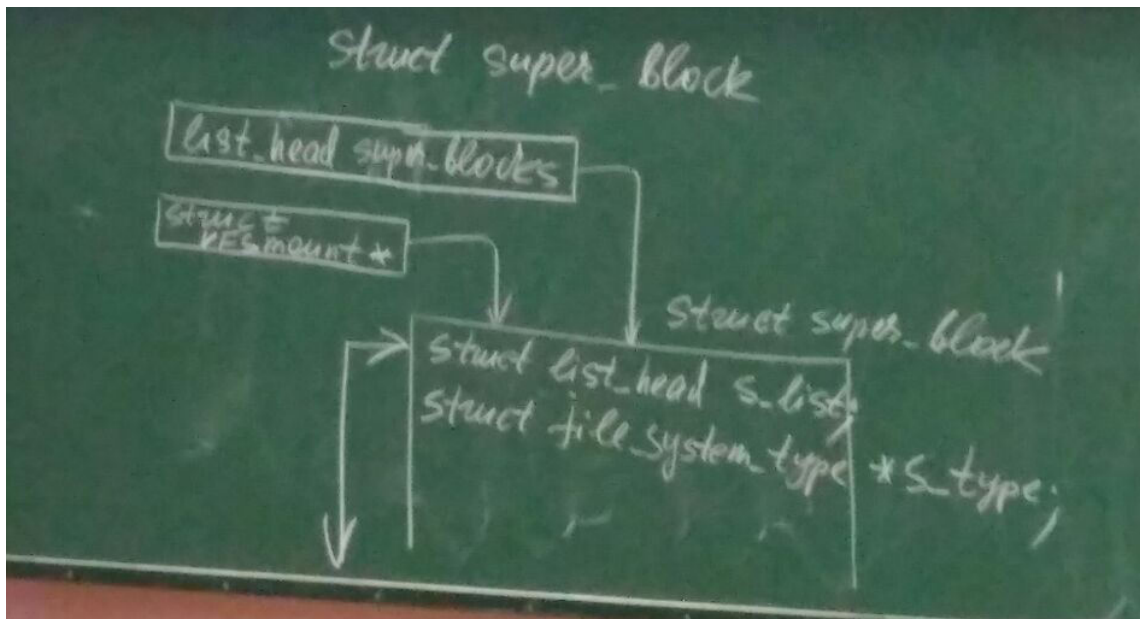 struct super_block
list_head super_blocks
struct
vfsmount *
struct super_block
struct list_head s_list;
struct file_system_type *s_type;